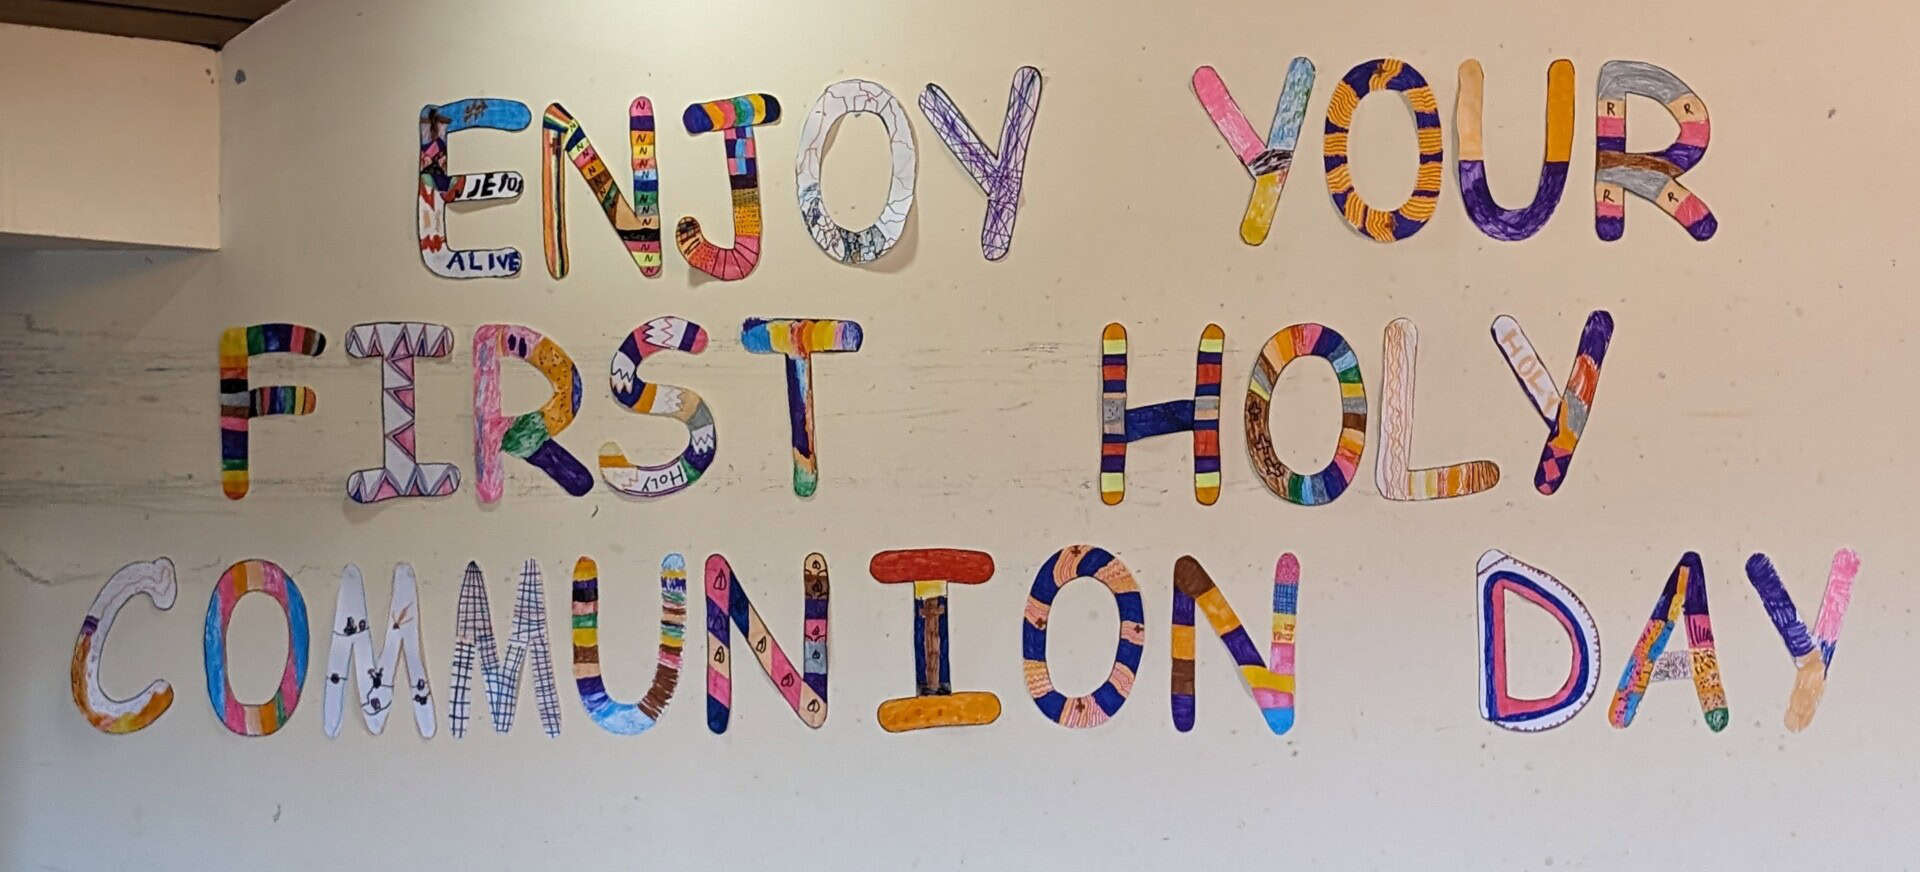 ENJOY YOUR
FIRST HOLY
COMMUNION DAY
ALIVE
HOLY
HOLY